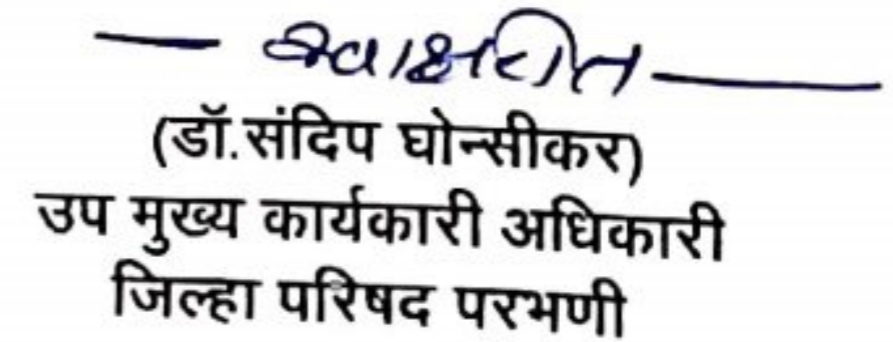 — स्वाक्षरीत —
(डॉ.संदिप घोन्सीकर)
उप मुख्य कार्यकारी अधिकारी
जिल्हा परिषद परभणी